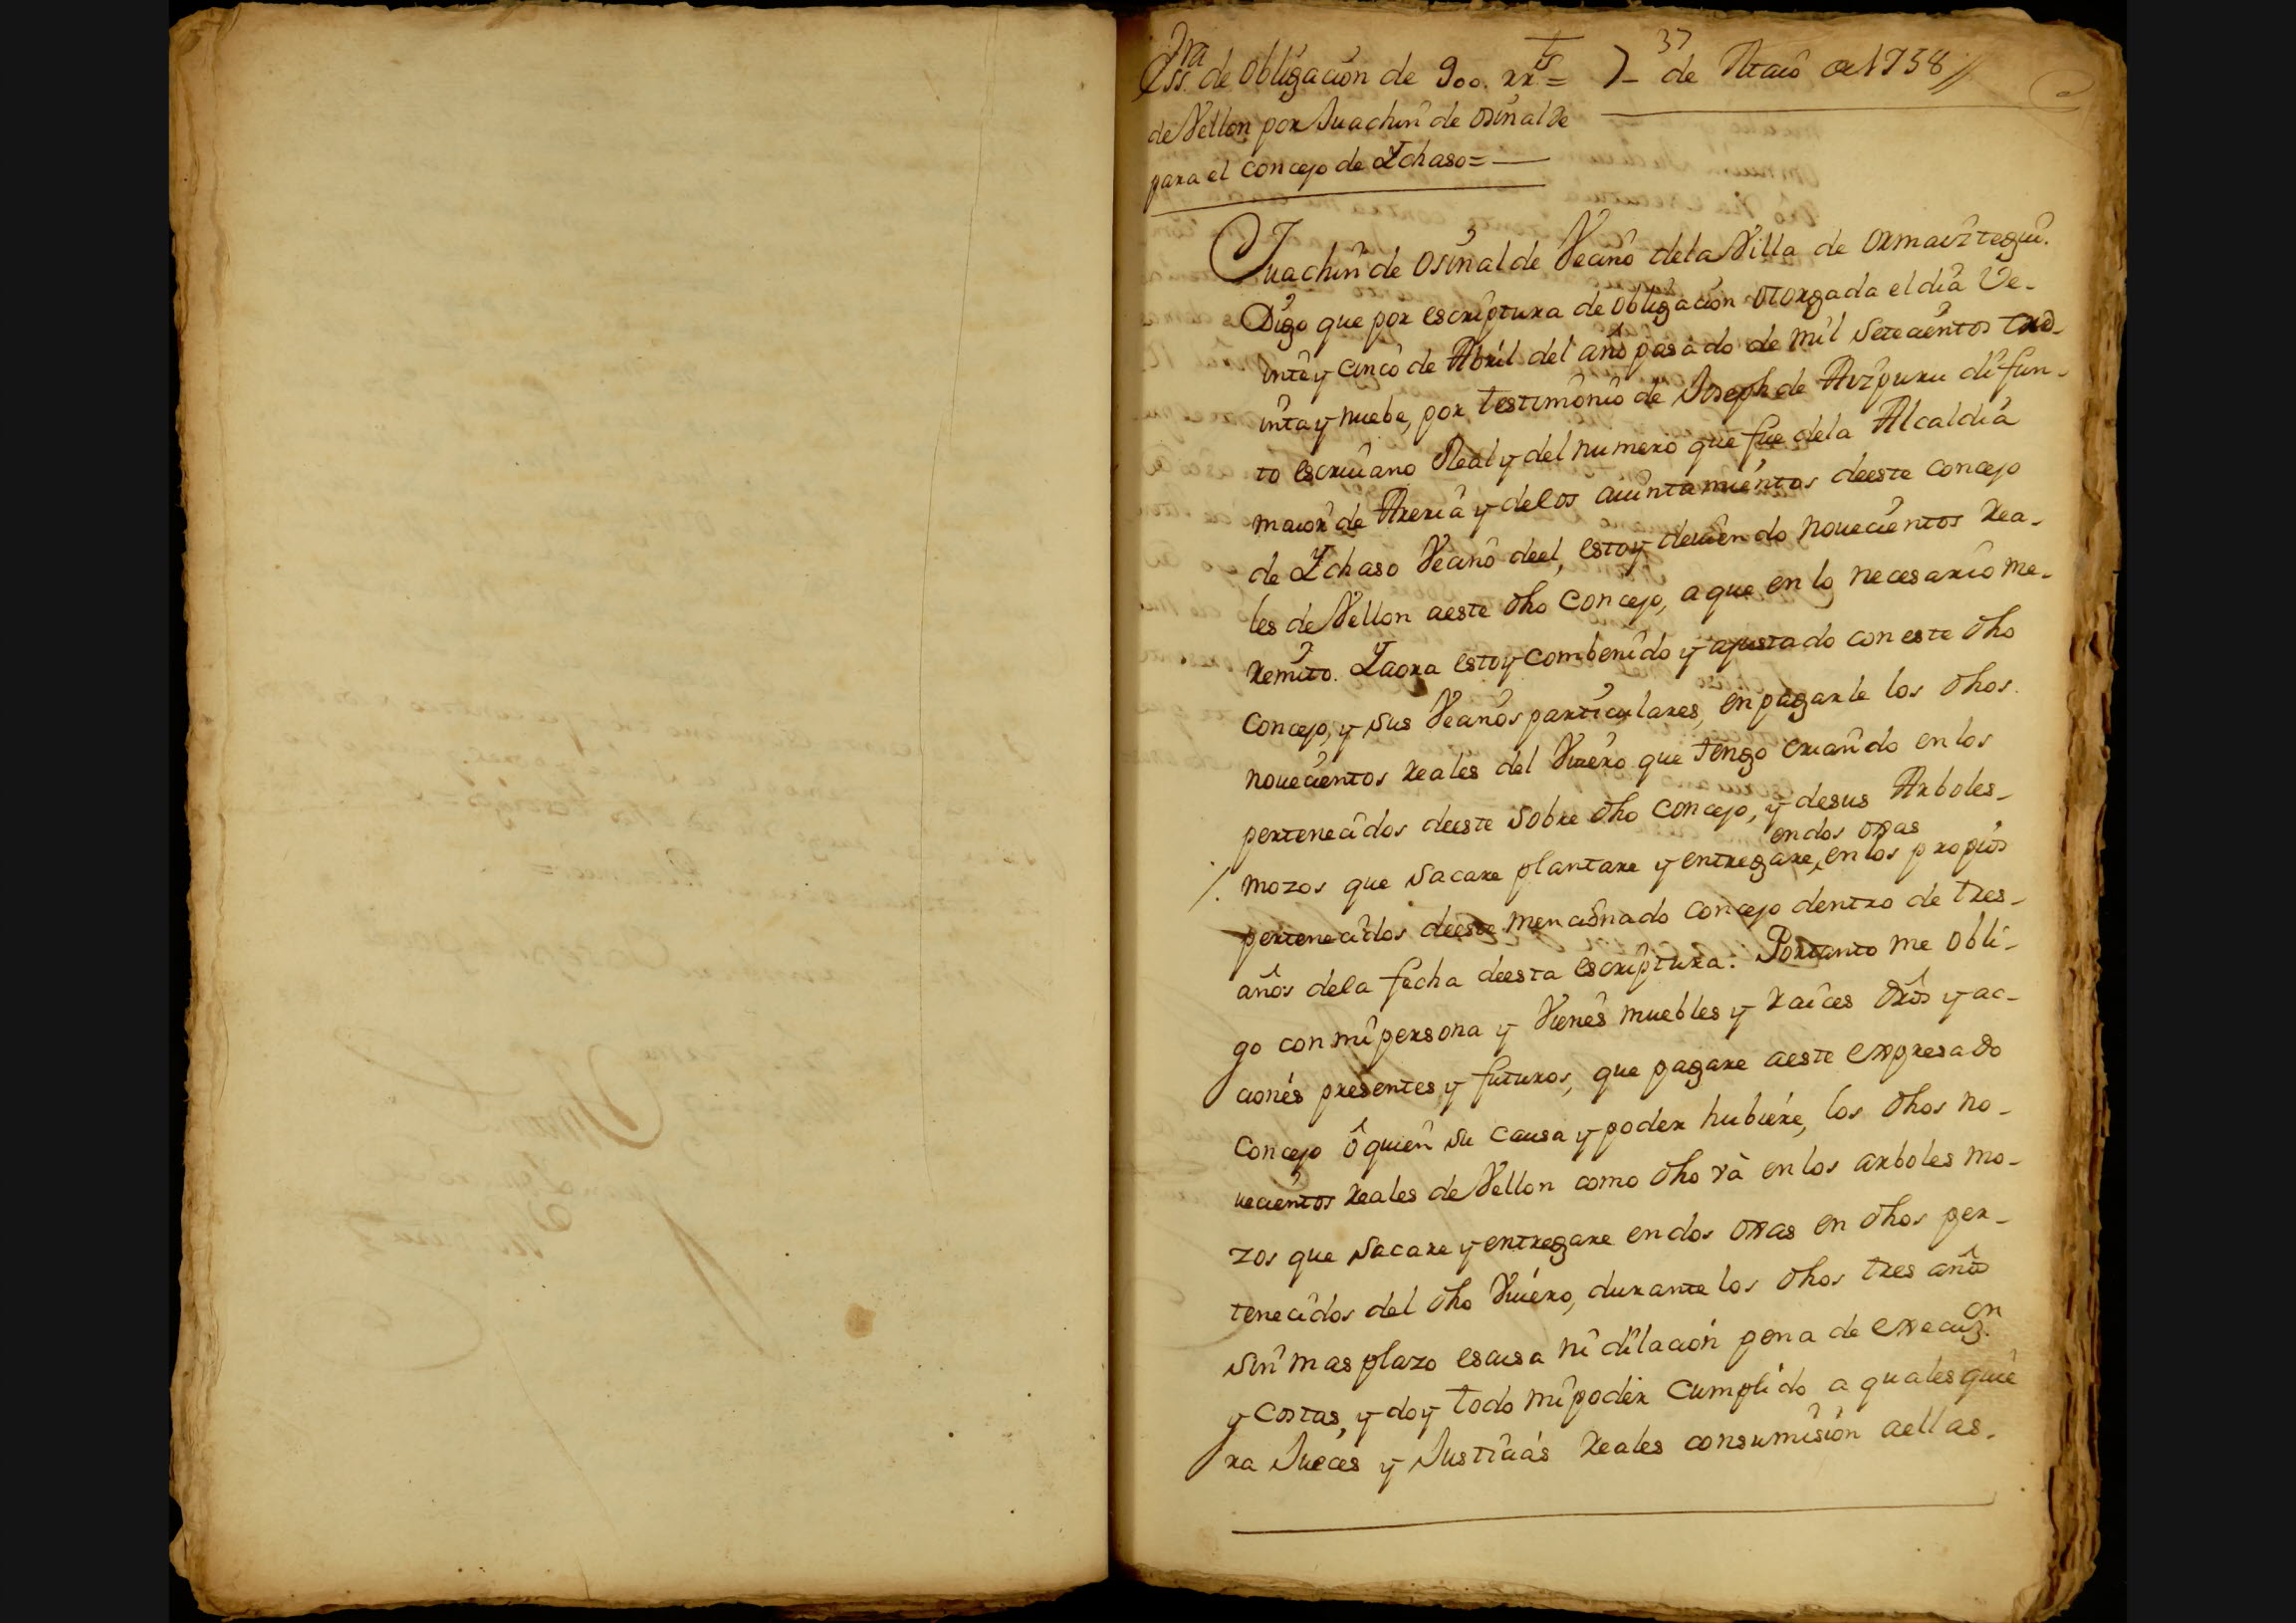 37
Essra de obligacion de 900. rrs = 7 de Maio de 1758 //
de Vellon por Juachin de Osinalde
para el concejo de Ychaso =
Juachin de Osinalde Vecino dela Villa de Ormaiztegui.
Digo que por escriptura de obligacion otorgada el dia Ve-
inte y cinco de Abril del año pasado de mil setecientos tre-
inta y nuebe, por testimonio de Joseph de Aizpuru difun-
to escriuano Real y del numero que fue dela Alcaldia
maior de Areria y delos aiuntamientos deeste concejo
de Ychaso Vecino deel, estoy deuiendo nouecientos rea-
les de Vellon aeste dho concejo, a que en lo necesario me
remito. Yaora estoy combenido y ajustado con este dho
concejo, y sus Vecinos particulares, en pagarle los dhos
nouecientos reales del Viuero que tengo criando en los
pertenecidos deeste sobre dho concejo, y desus Arboles
mozos que sacare plantare y entregare, en dos ojas en los propios
pertenecidos deeste mencionado concejo dentro de tres
años dela fecha deesta escriptura. Portanto me obli-
go con mi persona y Vienes muebles y raices dros y ac-
ciones presentes y futuros, que pagare aeste expresado
concejo ô quien su causa y poder hubiere, los dhos no-
uecientos reales de Vellon como dho và en los arboles mo-
zos que sacare y entregare en dos ojas en dhos per-
tenecidos del dho Viuero, durante los dhos tres años
sin mas plazo escusa ni dilacion pena de execuzon
y costas, y doy todo mi poder cumplido a qualesquie
ra Jueces y Justicias reales consumision aellas.